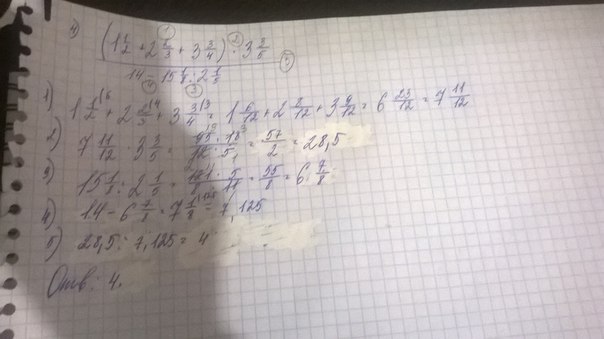 4) (1 1/2 + 2 2/3 + 3 3/4) · 3 3/5
14 - 15 1/8 : 2 1/5
1) 1 1/2 + 2 2/3 + 3 3/4 = 1 6/12 + 2 8/12 + 3 9/12 = 6 23/12 = 7 11/12
2) 7 11/12 · 3 3/5 = 95 · 18 / 12 · 5 = 57/2 = 28,5
3) 15 1/8 : 2 1/5 = 121/8 · 5/11 = 55/8 = 6 7/8
4) 14 - 6 7/8 = 7 1/8 = 7,125
5) 28,5 : 7,125 = 4
Отв: 4.